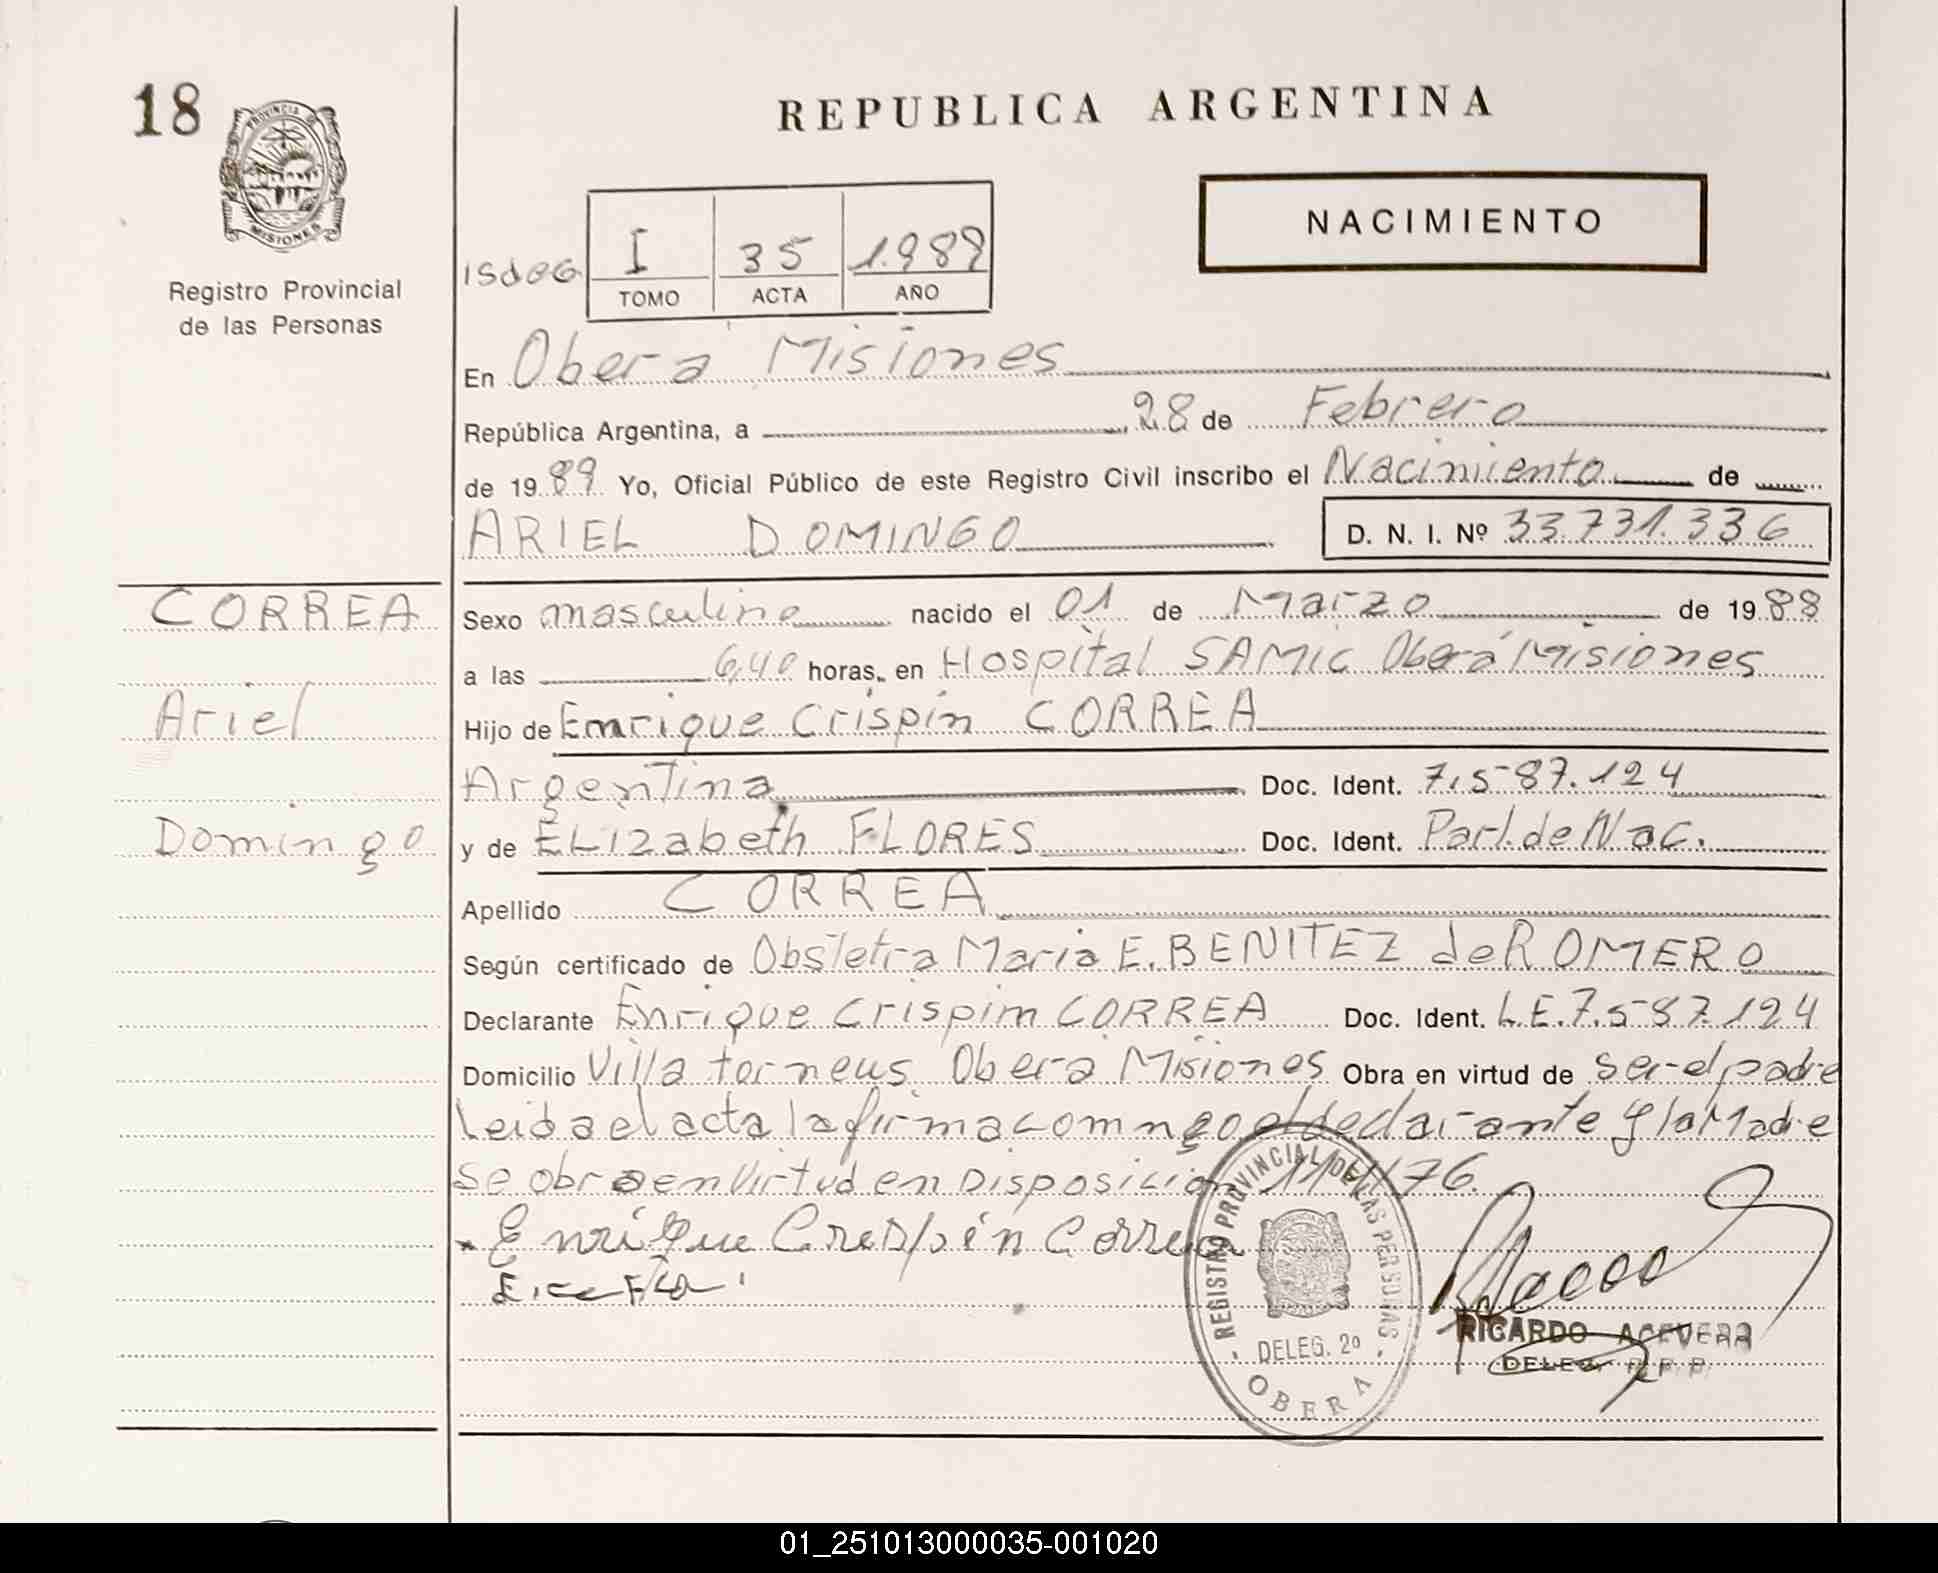 18
PROVINCIA DE
MISIONES
Registro Provincial
de las Personas
REPUBLICA ARGENTINA
NACIMIENTO
I 35 1.989
TOMO ACTA AÑO
En Oberá Misiones
República Argentina, a 28 de Febrero
de 1989 Yo, Oficial Público de este Registro Civil inscribo el Nacimiento de
ARIEL DOMINGO D. N. I. Nº 33.731.336
CORREA
Ariel
Domingo
Sexo masculino nacido el 01 de Marzo de 1988
a las 6,40 horas, en Hospital SAMIC Oberá Misiones
Hijo de Enrique Crispín CORREA
Argentina Doc. Ident. 7.587.124
y de ELizabeth FLORES Doc. Ident. Part. de Nac.
Apellido CORREA
Según certificado de Obstetra Maria E. BENITEZ de ROMERO
Declarante Enrique Crispim CORREA Doc. Ident. L.E.7.587.124
Domicilio Villa torneus Obera Misiones Obra en virtud de ser el padre
Leida el acta la firma commgo el declarante y la Madre
se obra en virtud en Disposición 11/76.
Enrique Crespín Correa
REGISTRO PROVINCIAL DE LAS PERSONAS
DELEG. 2º
OBERA
RICARDO
DELEG. R. P. P.
01_251013000035-001020